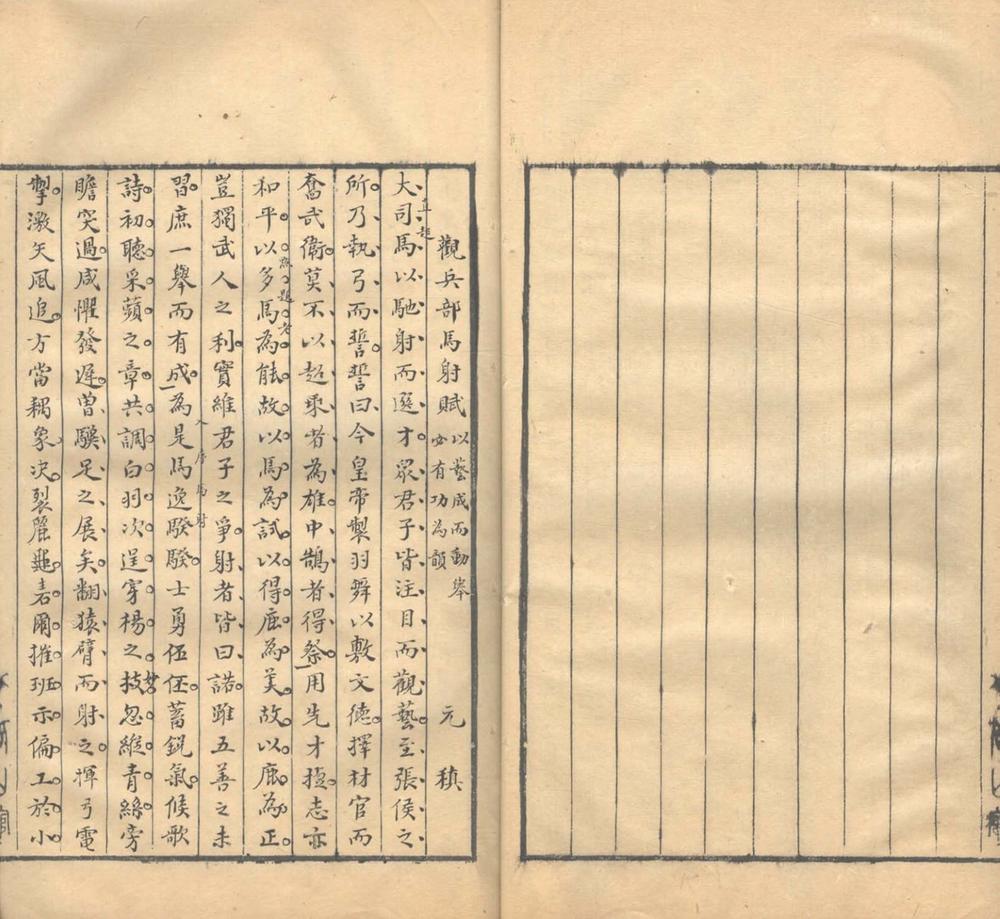 觀兵部馬射賦 以藝成而動舉 必有功為韻 元稹
大司馬以馳射而選才眾君子皆注目而觀藝至張侯之
直起
所乃執弓而誓誓曰今皇帝製羽舞以敷文德擇材官而
奮武衛莫不以超乘者為雄中鵠者得祭用先才擅志亦
和平以多馬為能故以馬為試以得鹿為美故以鹿為正
點題
豈獨武人之利實維君子之爭射者皆曰諾雖五善之未
習庶一舉而有成為是馬逸騤騤士勇伾伾蓄銳氣候歌
入序馬射
詩初聽采蘋之章共調白羽次逞穿楊之技忽縱青絲旁
瞻突過咸懼發遲曾驥足之展矣翻猿臂而射之揮弓電
掣激矢風追方當耦象決裂麗龜砉爾摧班示偏工於小